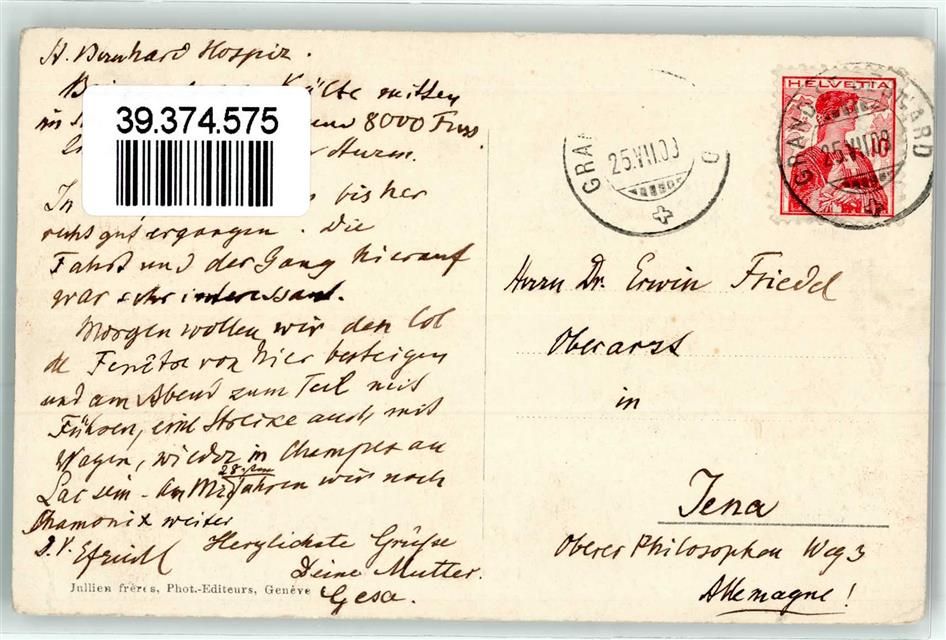 St. Bernhard Hospiz.
Kälte mitten
8000 Fuss.
Sturm.
In bisher
recht gut ergangen. Die
Fahrt und der Gang hierauf
war sehr interessant.
Morgen wollen wir den Col
de Fenêtre von hier besteigen
und am Abend zum Teil mit
Führer, eine Strecke auch mit
Wagen, wieder in Champex au
Lac sein. Am 28sten fahren wir nach
Chamonix weiter
D. V. Herzlichste Grüsse
Deine Mutter.
Gesa.
Jullien frères, Phot.-Editeurs, Genève
39.374.575
GRA
25.VII.09
HELVETIA
GRAND ST BERNARD
25.VII.09
Herrn Dr. Erwin Friedel
Oberarzt
in
Jena
Oberer Philosophen Weg 3
Allemagne!